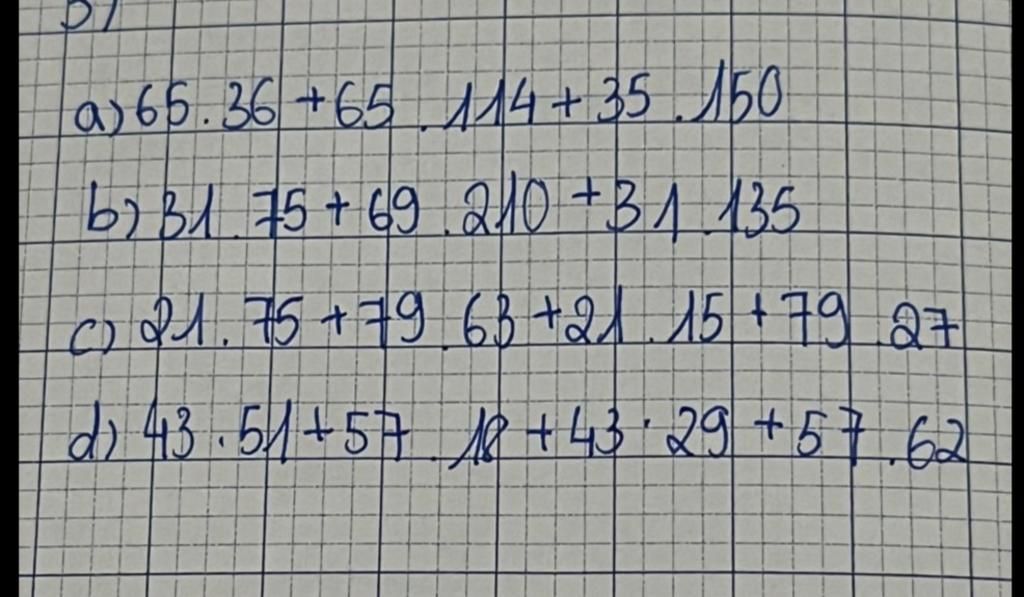 a) 65.36 + 65.114 + 35.150
b) 31.75 + 69.210 + 31.135
c) 21.75 + 79.63 + 21.15 + 79.27
d) 43.51 + 57.18 + 43.29 + 57.62